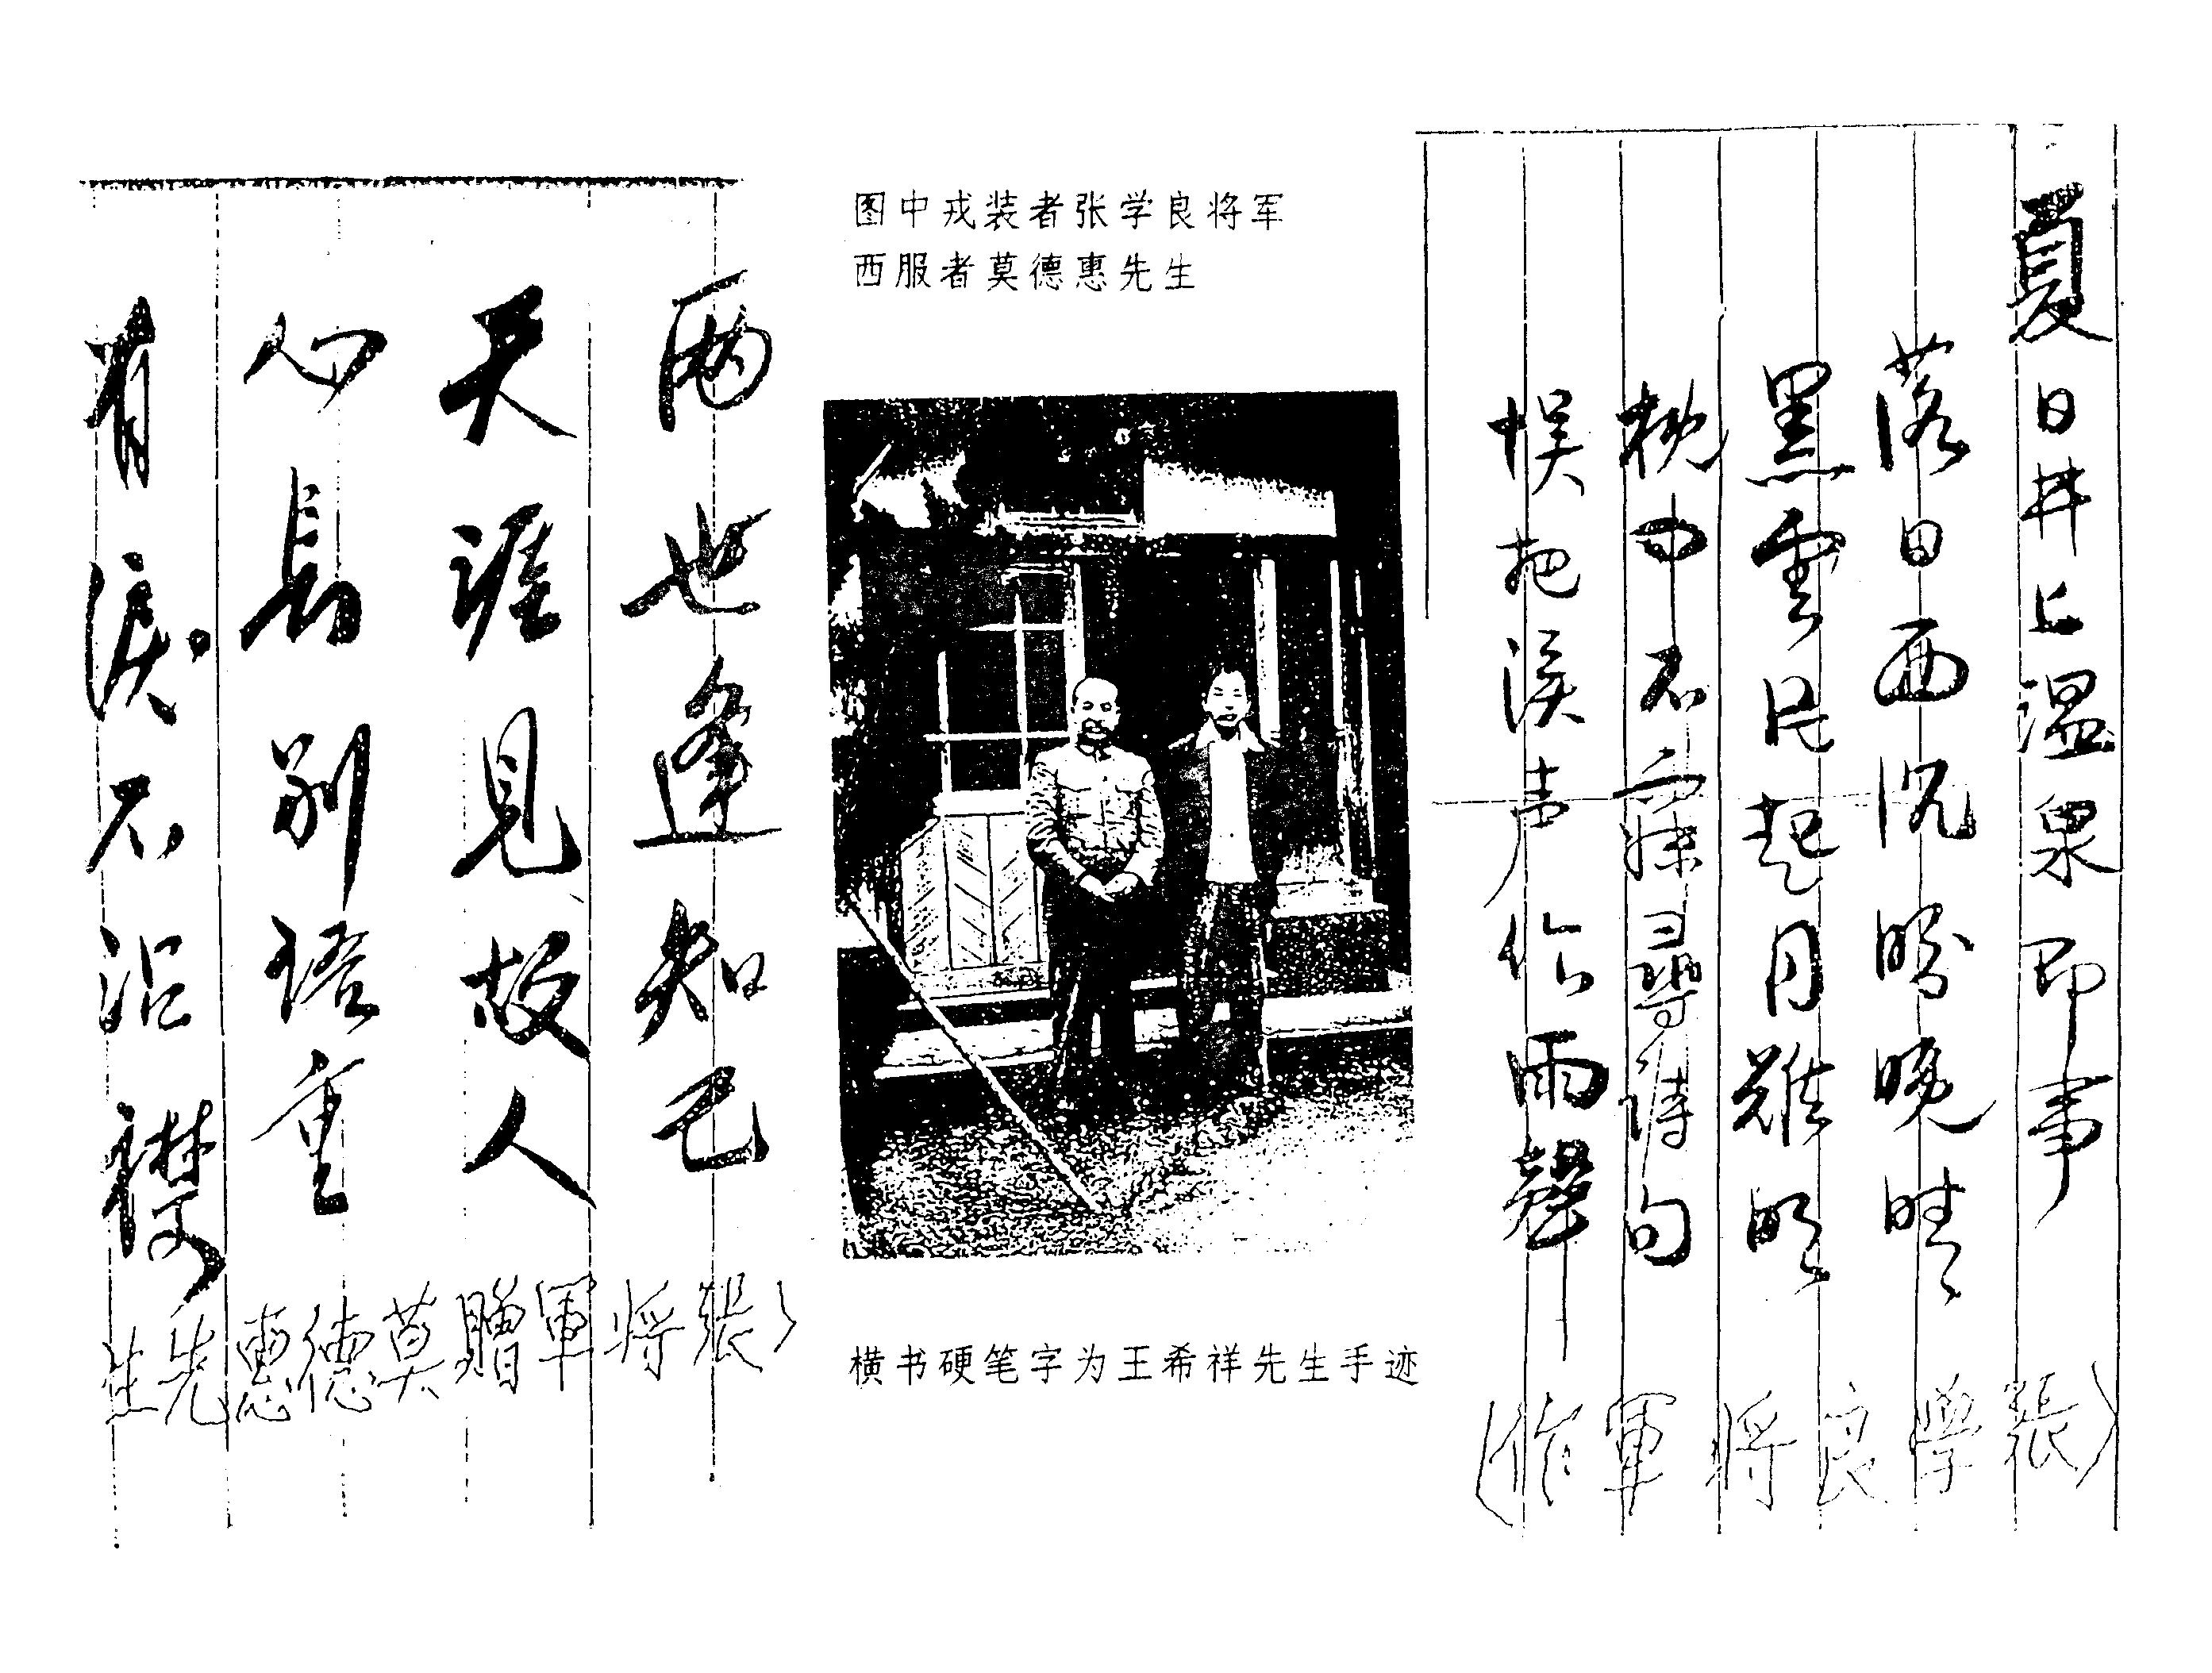 夏日井上溫泉即事
落日西沉盼晚晴
黑雲片起月難明
枕中不寐尋詩句
悮把溪声作雨聲
(張學良將軍作)
图中戎装者张学良将军
西服者莫德惠先生
横书硬笔字为王希祥先生手迹
兩世逢知己
天涯見故人
心長別語重
有淚不沾襟
(張將軍贈莫德惠先生